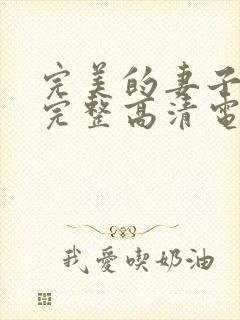 完美的妻子
完整高清電
我愛喫奶油